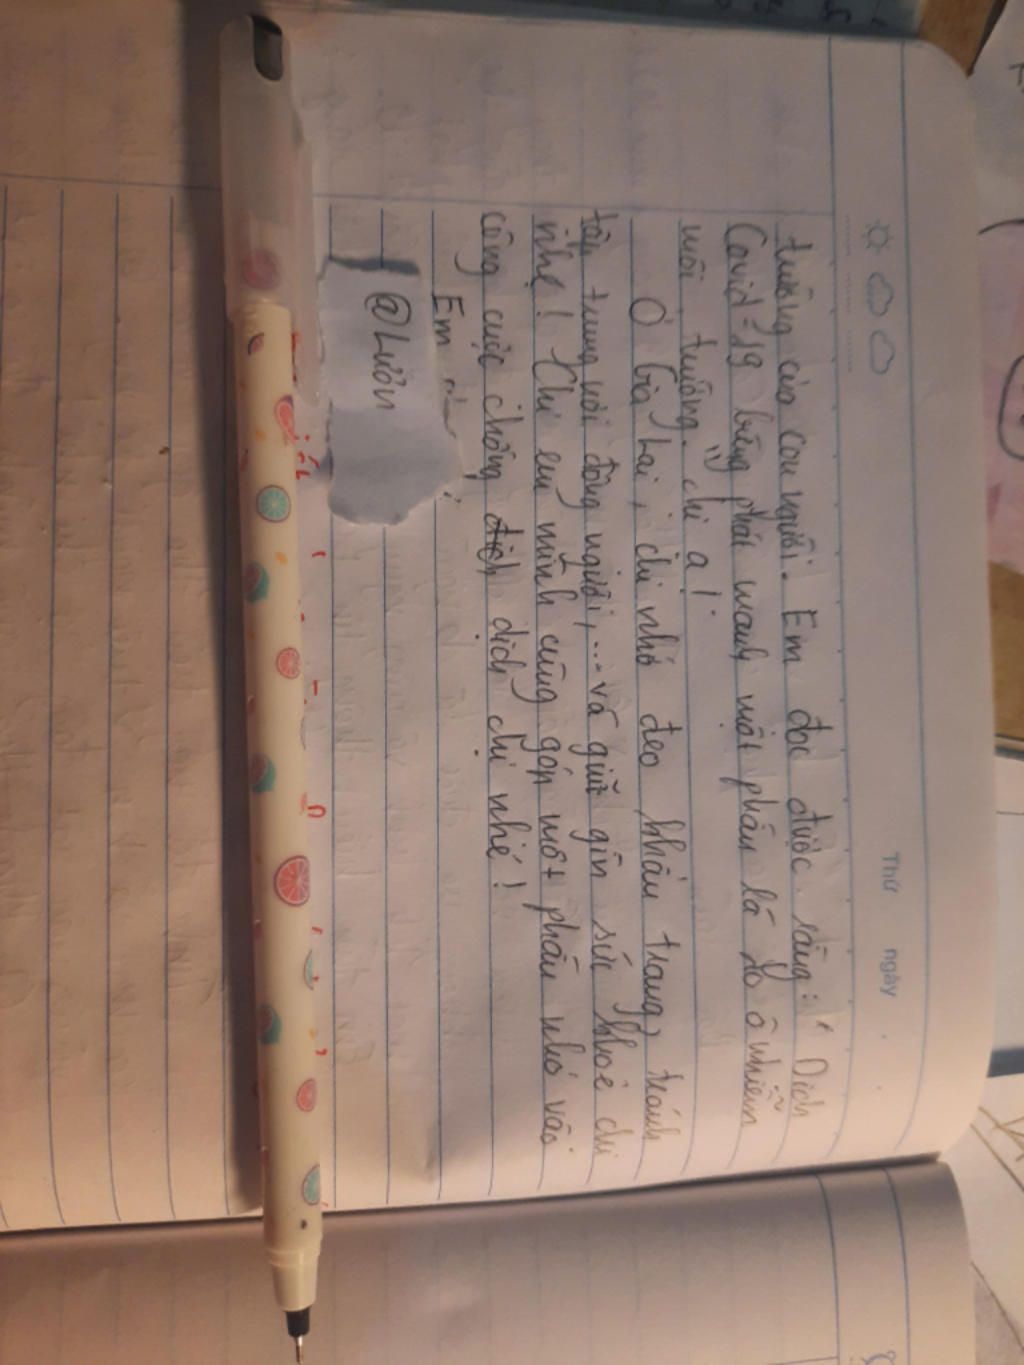 Thứ ngày
trường của con người. Em đọc được rằng: " Dịch
Covid-19 bùng phát mạnh một phần là do ô nhiễm
môi trường" chị ạ!
Ở bên ấy, chị nhớ đeo khẩu trang, tránh
tập trung nơi đông người,... và giữ gìn sức khoẻ chị
nhé! Chị em mình cùng góp một phần nhỏ vào
công cuộc chống dịch chị nhé!
Em
@Lươn